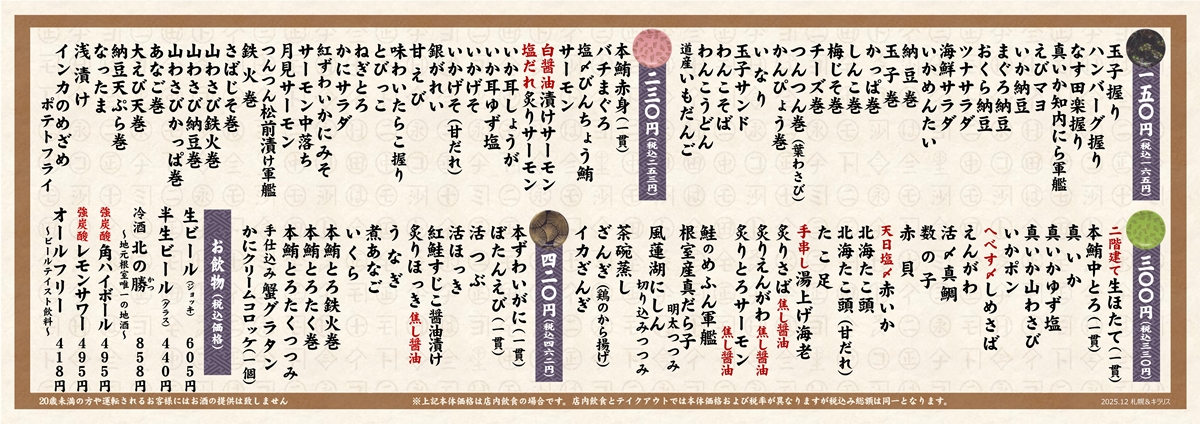 一五〇円(税込一六五円)
玉子握り
ハンバーグ握り
なす田楽握り
真いか知内にら軍艦
えびマヨ
いか納豆
まぐろ納豆
おくら納豆
ツナサラダ
海鮮サラダ
いかめんたい
納豆巻
玉子巻
かっぱ巻
梅しそ巻
チーズ巻
つんつん巻(葉わさび)
かんぴょう巻
いなり
玉子サンド
わんこそば
わんこうどん
道産いもだんご
二三〇円(税込二五三円)
本鮪赤身(一貫)
バチまぐろ
塩〆びんちょう鮪
サーモン
白醤油漬けサーモン
塩だれ炙りサーモン
いか耳しょうが
いか耳ゆず塩
いかげそ
いかげそ(甘だれ)
銀がれい
甘えび
味わいたらこ握り
とびっこ
ねぎとろ
かにサラダ
紅ずわいかにみそ
サーモン中落ち
月見サーモン
つんつん松前漬け軍艦
鉄火巻
さばじそ巻
山わさび鉄火巻
山わさび納豆巻
山わさびかっぱ巻
あなご巻
大えび天巻
納豆天ぷら巻
なったま
浅漬け
インカのめざめ
ポテトフライ
三〇〇円(税込三三〇円)
二階建て生ほたて(一貫)
本鮪中とろ(一貫)
真いか
真いかゆず塩
真いか山わさび
いかポン
へべす〆しめさば
えんがわ
活〆真鯛
数の子
赤貝
天日塩〆赤いか
北海たこ頭
北海たこ頭(甘だれ)
たこ足
手串し湯上げ海老
炙りさば 焦し醤油
炙りえんがわ 焦し醤油
炙りとろサーモン 焦し醤油
鮭のめふん軍艦
根室産真だら子
明太つつみ
風蓮湖にしん
切り込みつつみ
茶碗蒸し
ざんぎ(鶏のから揚げ)
イカざんぎ
四二〇円(税込四六二円)
本ずわいがに(一貫)
ぼたんえび(一貫)
活つぶ
活ほっき
紅鮭すじこ醤油漬け
炙りほっき 焦し醤油
うなぎ
煮あなご
いくら
本鮪とろ鉄火巻
本鮪とろたく巻
本鮪とろたくつつみ
手仕込み蟹グラタン
かにクリームコロッケ(一個)
お飲物(税込価格)
生ビール(ジョッキ) 605円
半生ビール(グラス) 440円
冷酒 北の勝 かつ 858円
~地元根室唯一の地酒~
強炭酸 角ハイボール 495円
強炭酸 レモンサワー 495円
オールフリー 418円
~ビールテイスト飲料~
20歳未満の方や運転されるお客様にはお酒の提供は致しません
※上記本体価格は店内飲食の場合です。店内飲食とテイクアウトでは本体価格および税率が異なりますが税込み総額は同一となります。
2025.12 札幌&キラリス